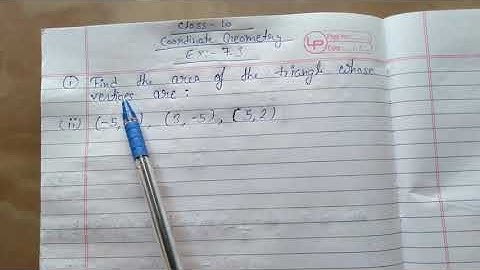 Class-10
Coordinate Geometry
Ex:- 7.3
(1) Find the area of the triangle whose
vertices are :
(ii) (-5, ), (3, -5), (5, 2)
LP